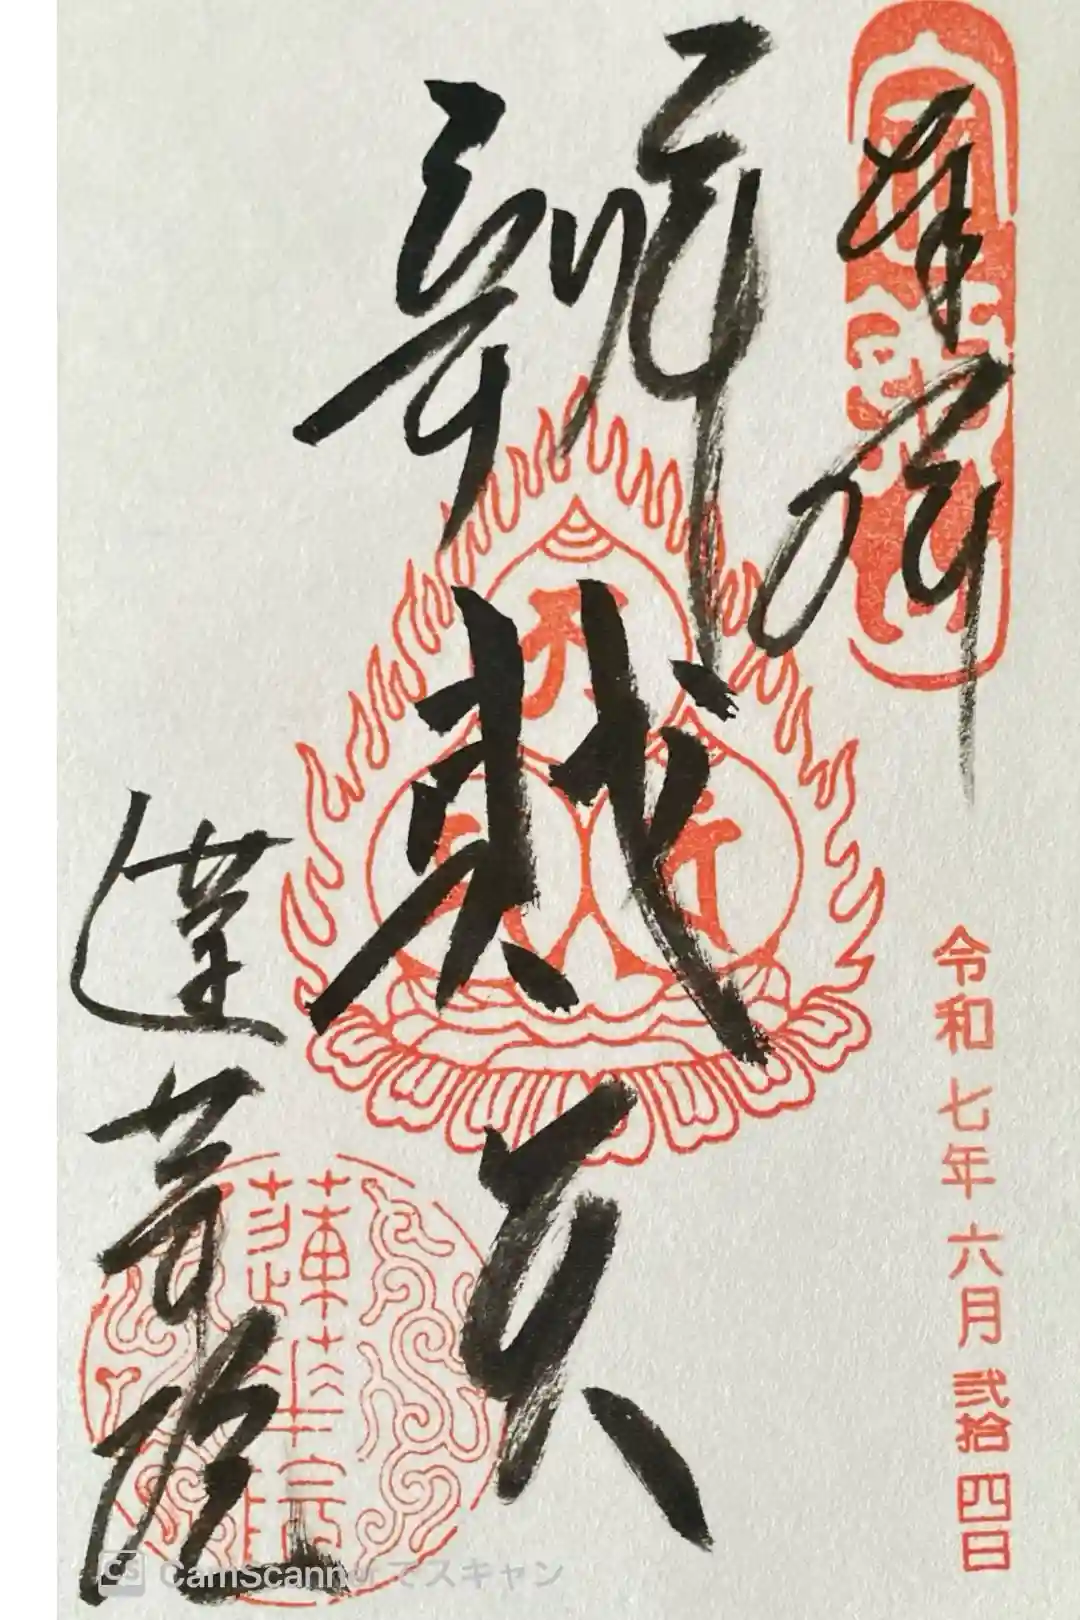 奉拝
令和七年六月弐拾四日
辨財天
蓮華院
蓮華院
CS CamScannerでスキャン